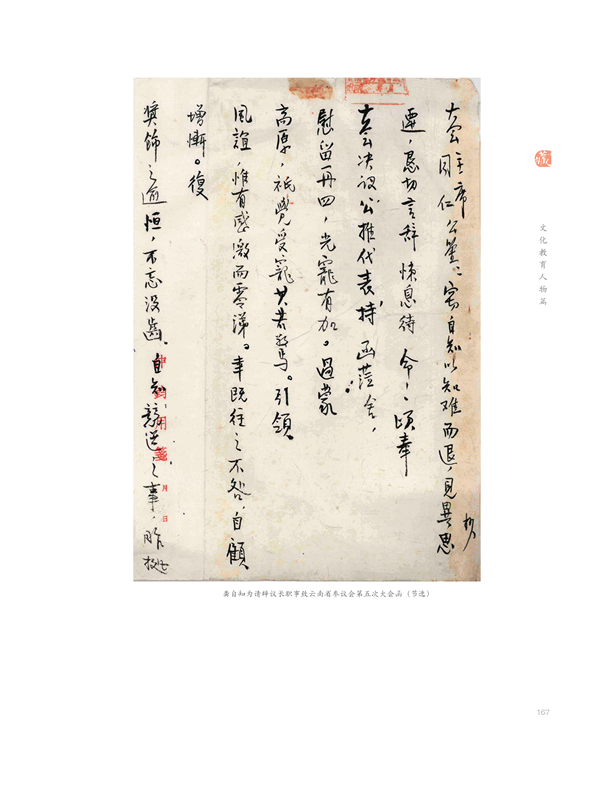 大会主席
同仁公鉴：窃自知以知难而退，见异思
迁，恳切言辞，悚息待命，顷奉
大会决议公推代表，持函莅舍，
慰留再四，光宠有加。过蒙
高厚，祇觉受宠若惊焉。引领
风谊，惟有感激而零涕。幸既往之不咎，自顾
增惭。复
奖饰之逾恒，不忘没齿。自知
之事，昨
用笺
月 日
文化教育人物篇
龚自知为请辞议长职事致云南省参议会第五次大会函（节选）
167